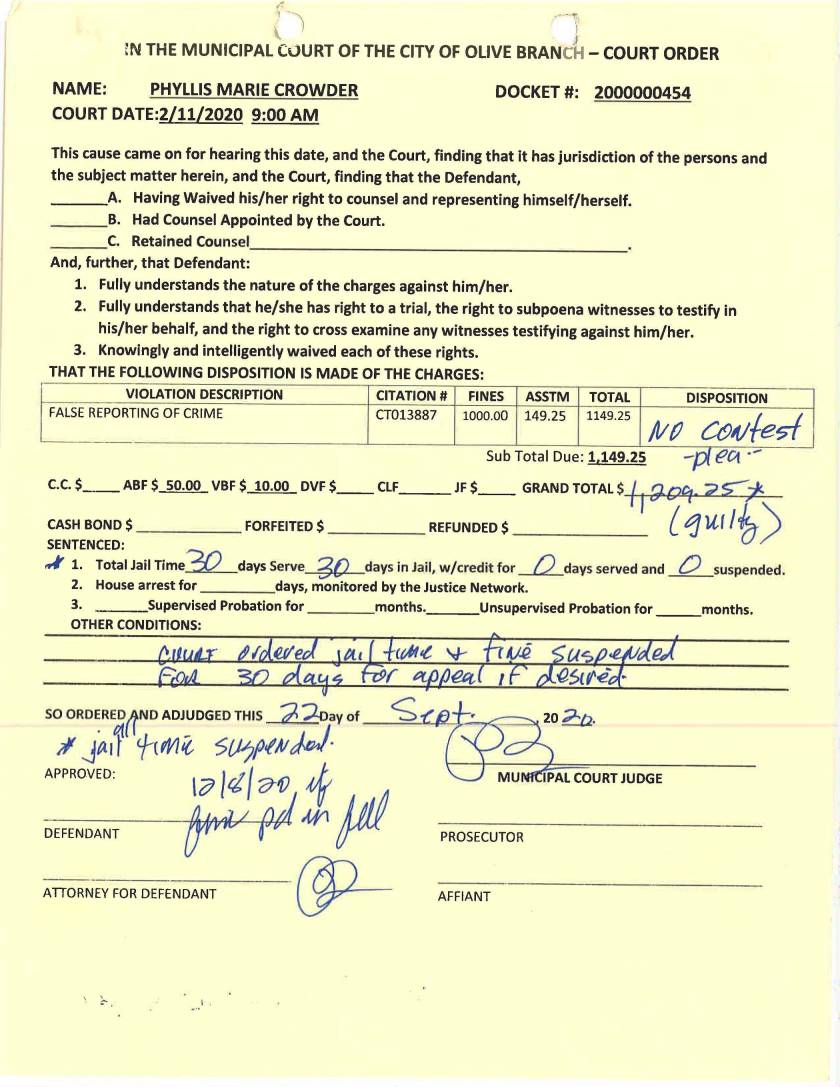 IN THE MUNICIPAL COURT OF THE CITY OF OLIVE BRANCH – COURT ORDER
NAME: PHYLLIS MARIE CROWDER DOCKET #: 2000000454
COURT DATE:2/11/2020 9:00 AM
This cause came on for hearing this date, and the Court, finding that it has jurisdiction of the persons and
the subject matter herein, and the Court, finding that the Defendant,
______A. Having Waived his/her right to counsel and representing himself/herself.
______B. Had Counsel Appointed by the Court.
______C. Retained Counsel______.
And, further, that Defendant:
1. Fully understands the nature of the charges against him/her.
2. Fully understands that he/she has right to a trial, the right to subpoena witnesses to testify in
his/her behalf, and the right to cross examine any witnesses testifying against him/her.
3. Knowingly and intelligently waived each of these rights.
THAT THE FOLLOWING DISPOSITION IS MADE OF THE CHARGES:
VIOLATION DESCRIPTION CITATION # FINES ASSTM TOTAL DISPOSITION
FALSE REPORTING OF CRIME CT013887 1000.00 149.25 1149.25 NO Contest
Sub Total Due: 1,149.25 -plea-
C.C. $_____ ABF $ 50.00 VBF $ 10.00 DVF $_____ CLF_____ JF $_____ GRAND TOTAL $ 1,209.25 *
CASH BOND $ ______ FORFEITED $ ______ REFUNDED $ ______ (guilty)
SENTENCED:
* 1. Total Jail Time 30 days Serve 30 days in Jail, w/credit for 0 days served and 0 suspended.
2. House arrest for ______days, monitored by the Justice Network.
3. ______Supervised Probation for ______months.______Unsupervised Probation for ______months.
OTHER CONDITIONS:
Court ordered jail time + fine suspended
For 30 days for appeal if desired.
SO ORDERED AND ADJUDGED THIS 22 Day of Sept. , 20 20.
* jail all time suspended.
APPROVED: MUNICIPAL COURT JUDGE
12/8/20 if
fine pd in full
DEFENDANT PROSECUTOR
ATTORNEY FOR DEFENDANT AFFIANT